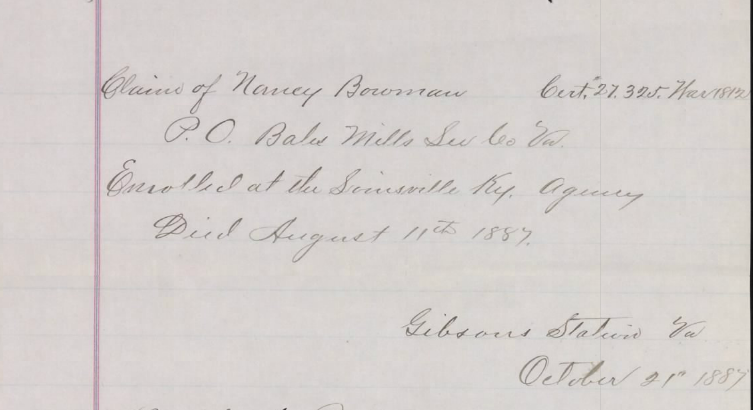 Claim of Nancy Bowman Cert. # 27.325. War 1812
P.O. Bales Mills Lee Co Va.
Enrolled at the Louisville Ky. Agency
Died August 11th 1887.
Gibsons Station Va
October 21st 1887